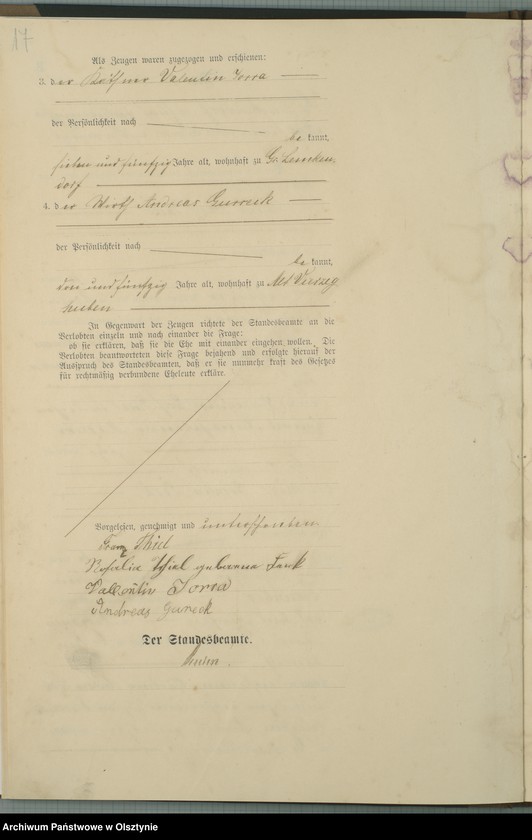 17
Als Zeugen waren zugezogen und erschienen:
3. der Käthner Valentin Jorra
der Persönlichkeit nach
be kannt,
sieben und fünfzig Jahre alt, wohnhaft zu Gr. Lemken
dorf
4. der Wirth Andreas Gurreck
der Persönlichkeit nach
be kannt,
und fünfzig Jahre alt, wohnhaft zu Alt Vierzig
huben
In Gegenwart der Zeugen richtete der Standesbeamte an die
Verlobten einzeln und nach einander die Frage:
ob sie erklären, daß sie die Ehe mit einander eingehen wollen. Die
Verlobten beantworteten diese Frage bejahend und erfolgte hierauf der
Ausspruch des Standesbeamten, daß er sie nunmehr kraft des Gesetzes
für rechtmäßig verbundene Eheleute erkläre.
Vorgelesen, genehmigt und unterschrieben
Franz Thiel
Rosalia Thiel geborene
Valentin Jorra
Andreas Gureck
Der Standesbeamte.
Archiwum Państwowe w Olsztynie